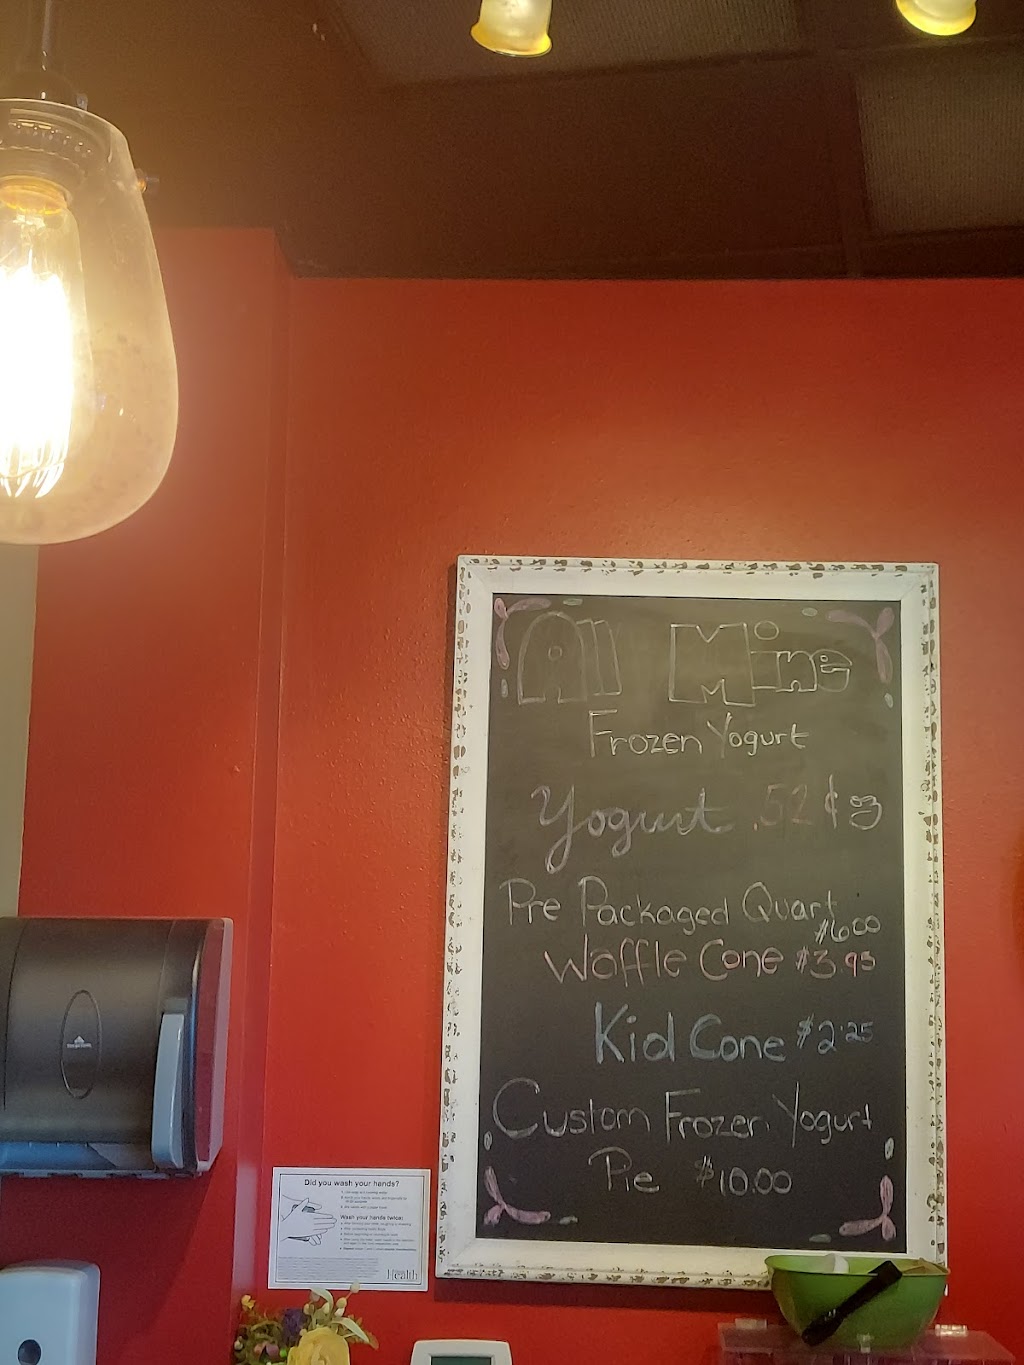 All Mine
Frozen Yogurt
Yogurt .52 ¢ oz
Pre Packaged Quart
$6.00
Waffle Cone $3.95
Kid Cone $2.25
Custom Frozen Yogurt
Pie $10.00
Did you wash your hands?
Wash your hands twice:
Health